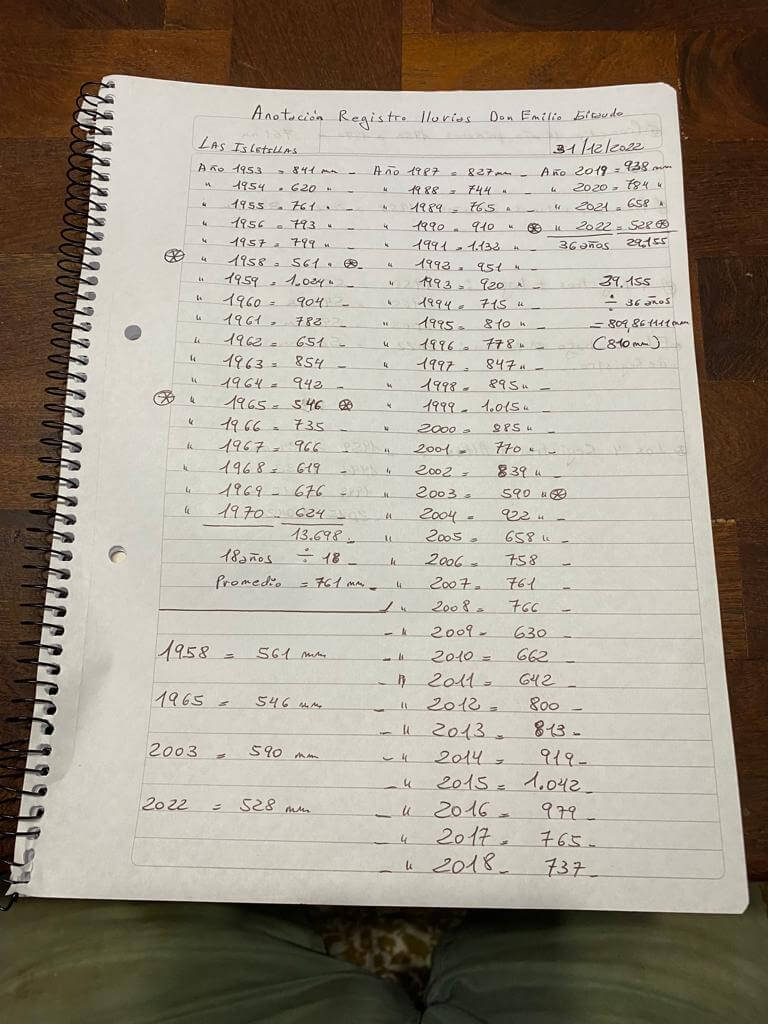 Anotación Registro lluvias Don Emilio
LAS ISLETILLAS
31/12/2022
Año 1953 = 841 mm -
" 1954 = 620 " -
" 1955 = 761 " -
" 1956 = 793 -
" 1957 = 799 " -
" 1958 = 561 "
" 1959 = 1.024 " -
" 1960 = 904 -
" 1961 = 782 -
" 1962 = 651 -
" 1963 = 854 -
" 1964 = 942 -
" 1965 = 546
" 1966 = 735 -
" 1967 = 966 -
" 1968 = 619 -
" 1969 - 676 -
" 1970 - 624
13.698 -
18 años ÷ 18
Promedio = 761 mm -
1958 = 561 mm
1965 = 546 mm
2003 = 590 mm
2022 = 528 mm
Año 1987 = 827 mm -
" 1988 = 744 " -
" 1989 = 765 " -
" 1990 = 910 " -
" 1991 = 1.132 " -
" 1992 = 951 " -
" 1993 = 920 " -
" 1994 = 715 " -
" 1995 = 810 " -
" 1996 = 778 " -
" 1997 = 847 " -
" 1998 = 895 " -
" 1999 = 1.015 " -
" 2000 = 885 " -
" 2001 = 770 " -
" 2002 = 839 " -
" 2003 = 590 "
" 2004 = 922 " -
" 2005 = 658 " -
" 2006 = 758 -
" 2007 = 761 -
" 2008 = 766 -
- " 2009 - 630 -
- " 2010 = 662 -
- " 2011 = 642 -
- " 2012 = 800 -
- " 2013 = 813 -
- " 2014 = 919 -
- " 2015 = 1.042 -
- " 2016 = 979 -
- " 2017 = 765 -
- " 2018 - 737 -
Año 2019 = 938 mm
" 2020 = 784 "
" 2021 = 658 "
" 2022 = 528
36 años 29,155
29,155
÷ 36 años
= 809,861111 mm
(810 mm)